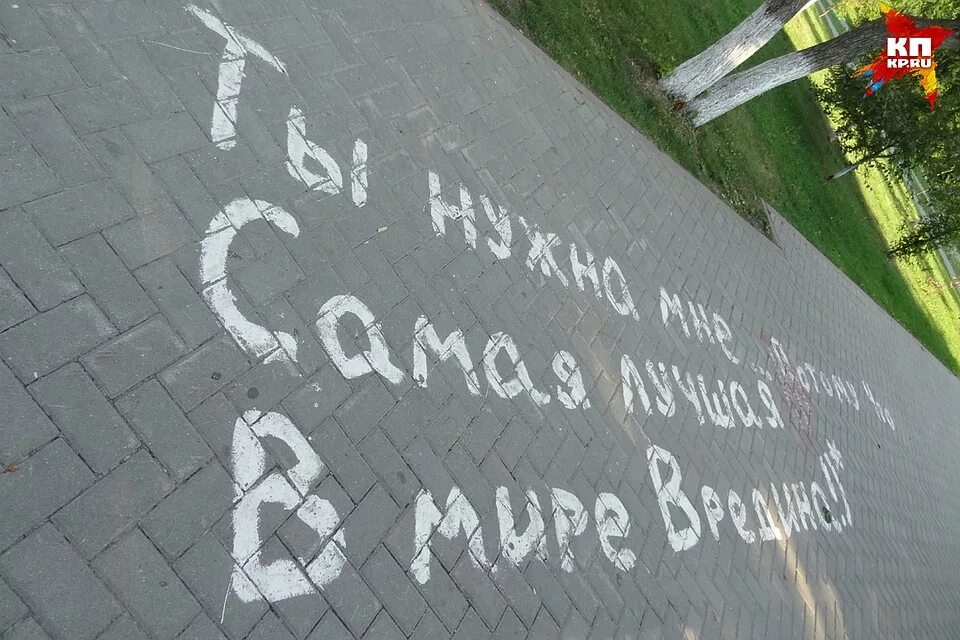 Ты нужна мне Потому что
Самая лучшая
В мире Вредина!!*
КП
KP.RU